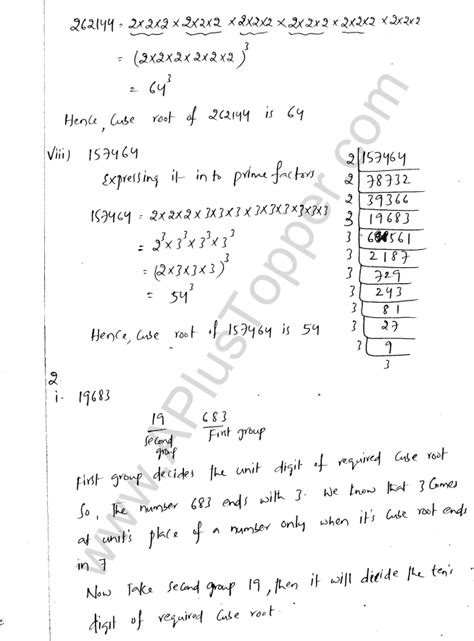 262144 = 2×2×2 × 2×2×2 × 2×2×2 × 2×2×2 × 2×2×2 × 2×2×2
= (2×2×2×2×2×2)³
= 64³
Hence, Cube root of 262144 is 64
viii) 157464
Expressing it in to prime factors
157464 = 2×2×2×3×3×3×3×3×3×3×3×3
= 2³×3³×3³×3³
= (2×3×3×3)³
= 54³
Hence, Cube root of 157464 is 54
2 157464
2 78732
2 39366
3 19683
3 6561
3 2187
3 729
3 243
3 81
3 27
3 9
3
2
i. 19683
19 683
Second group First group
First group decides the unit digit of required Cube root
So, The number 683 ends with 3. We know that 3 Comes
at unit's place of a number only when it's Cube root ends
in 7
Now Take Second group 19, then it will decide the ten's
digit of required Cube root
www.APlusTopper.com